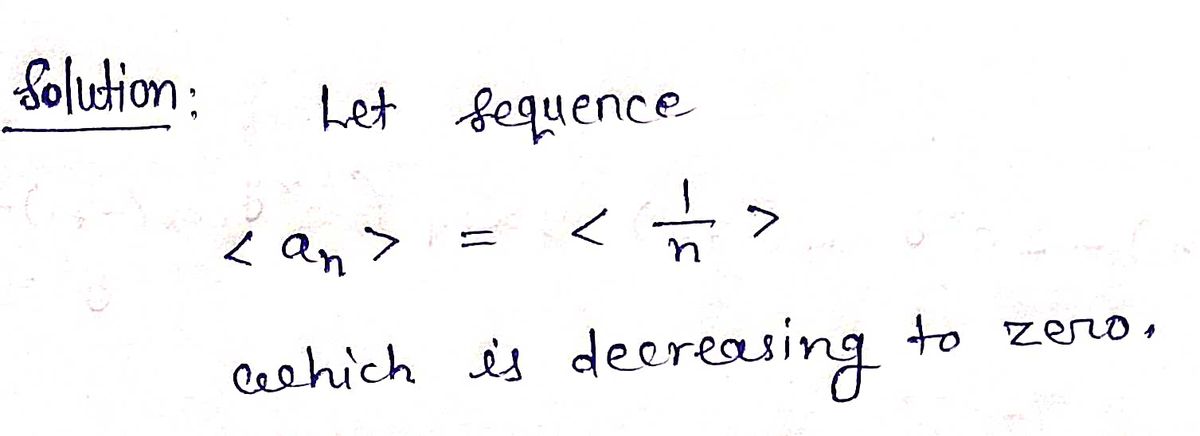 Solution: Let sequence
< aₙ > = < 1/n >
which is decreasing to zero.